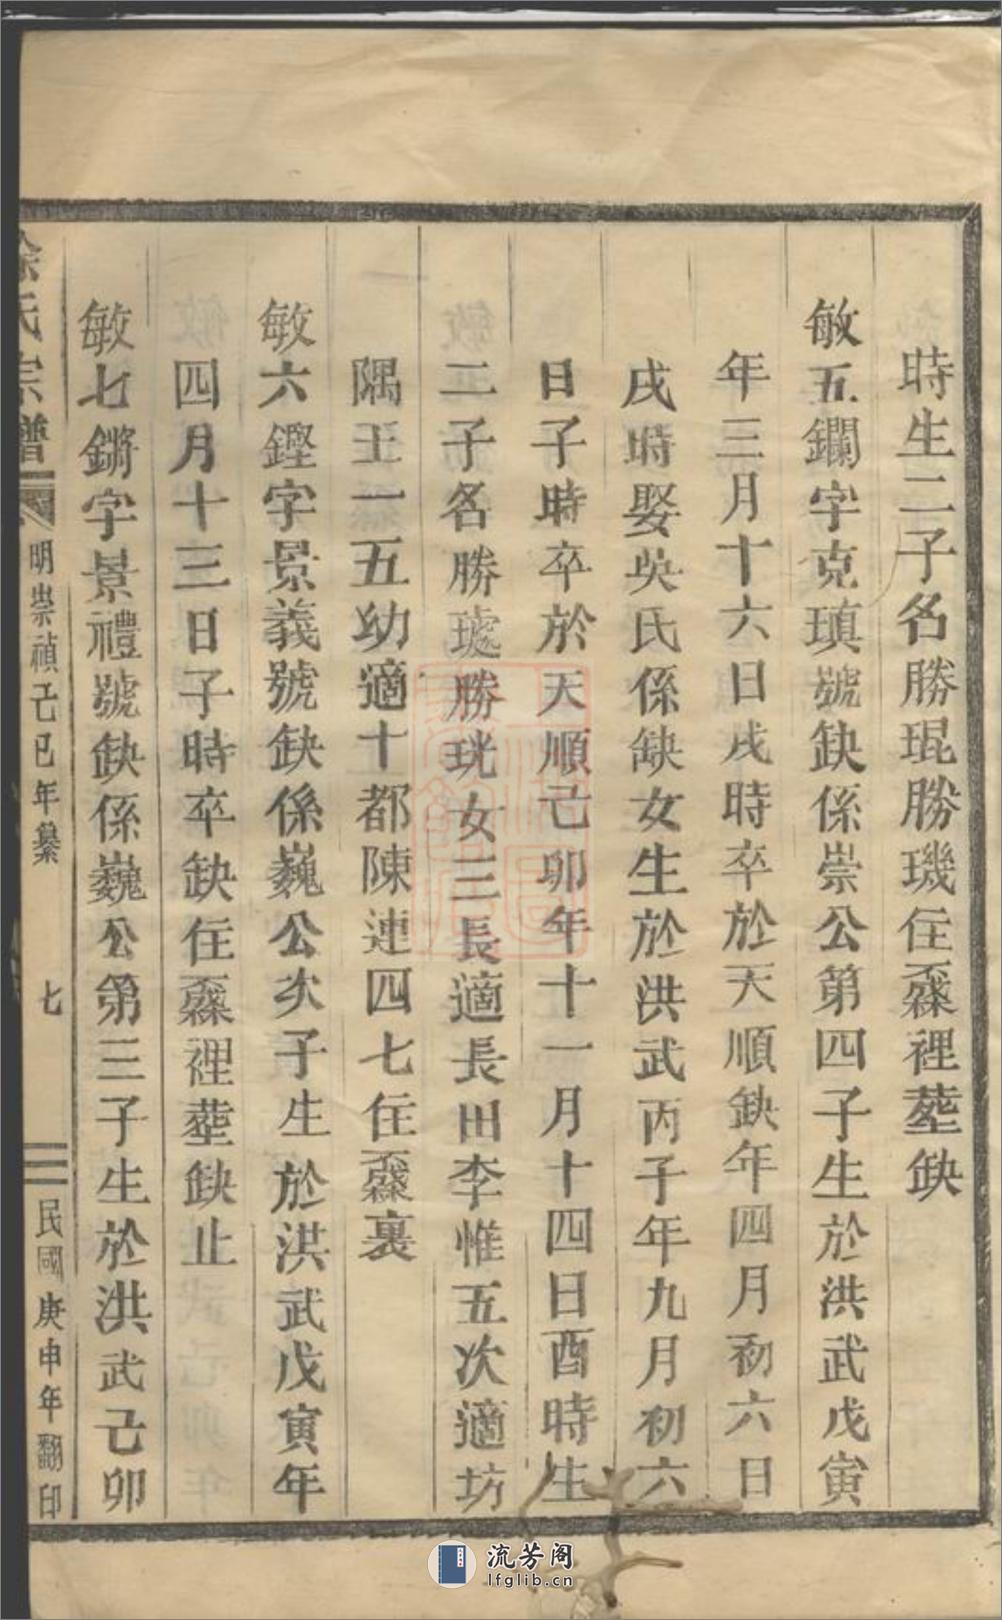 時生二子名勝琨勝璣住灥裡塟缺
敏五鑭字克瑱號缺係崇公第四子生於洪武戊寅
年三月十六日戌時卒於天順缺年四月初六日
戌時娶吳氏係缺女生於洪武丙子年九月初六
日子時卒於天順己卯年十一月十四日酉時生
二子名勝琥勝珖女三長適長田李惟五次適坊
隅王一五幼適十都陳連四七住灥裏
敏六鏗字景義號缺係巍公次子生於洪武戊寅年
四月十三日子時卒缺住灥裡塟缺止
敏七鏘字景禮號缺係巍公第三子生於洪武己卯
徐氏宗譜
明崇禎己巳年纂
七
民國庚申年翻印
流芳阁
lfglib.cn